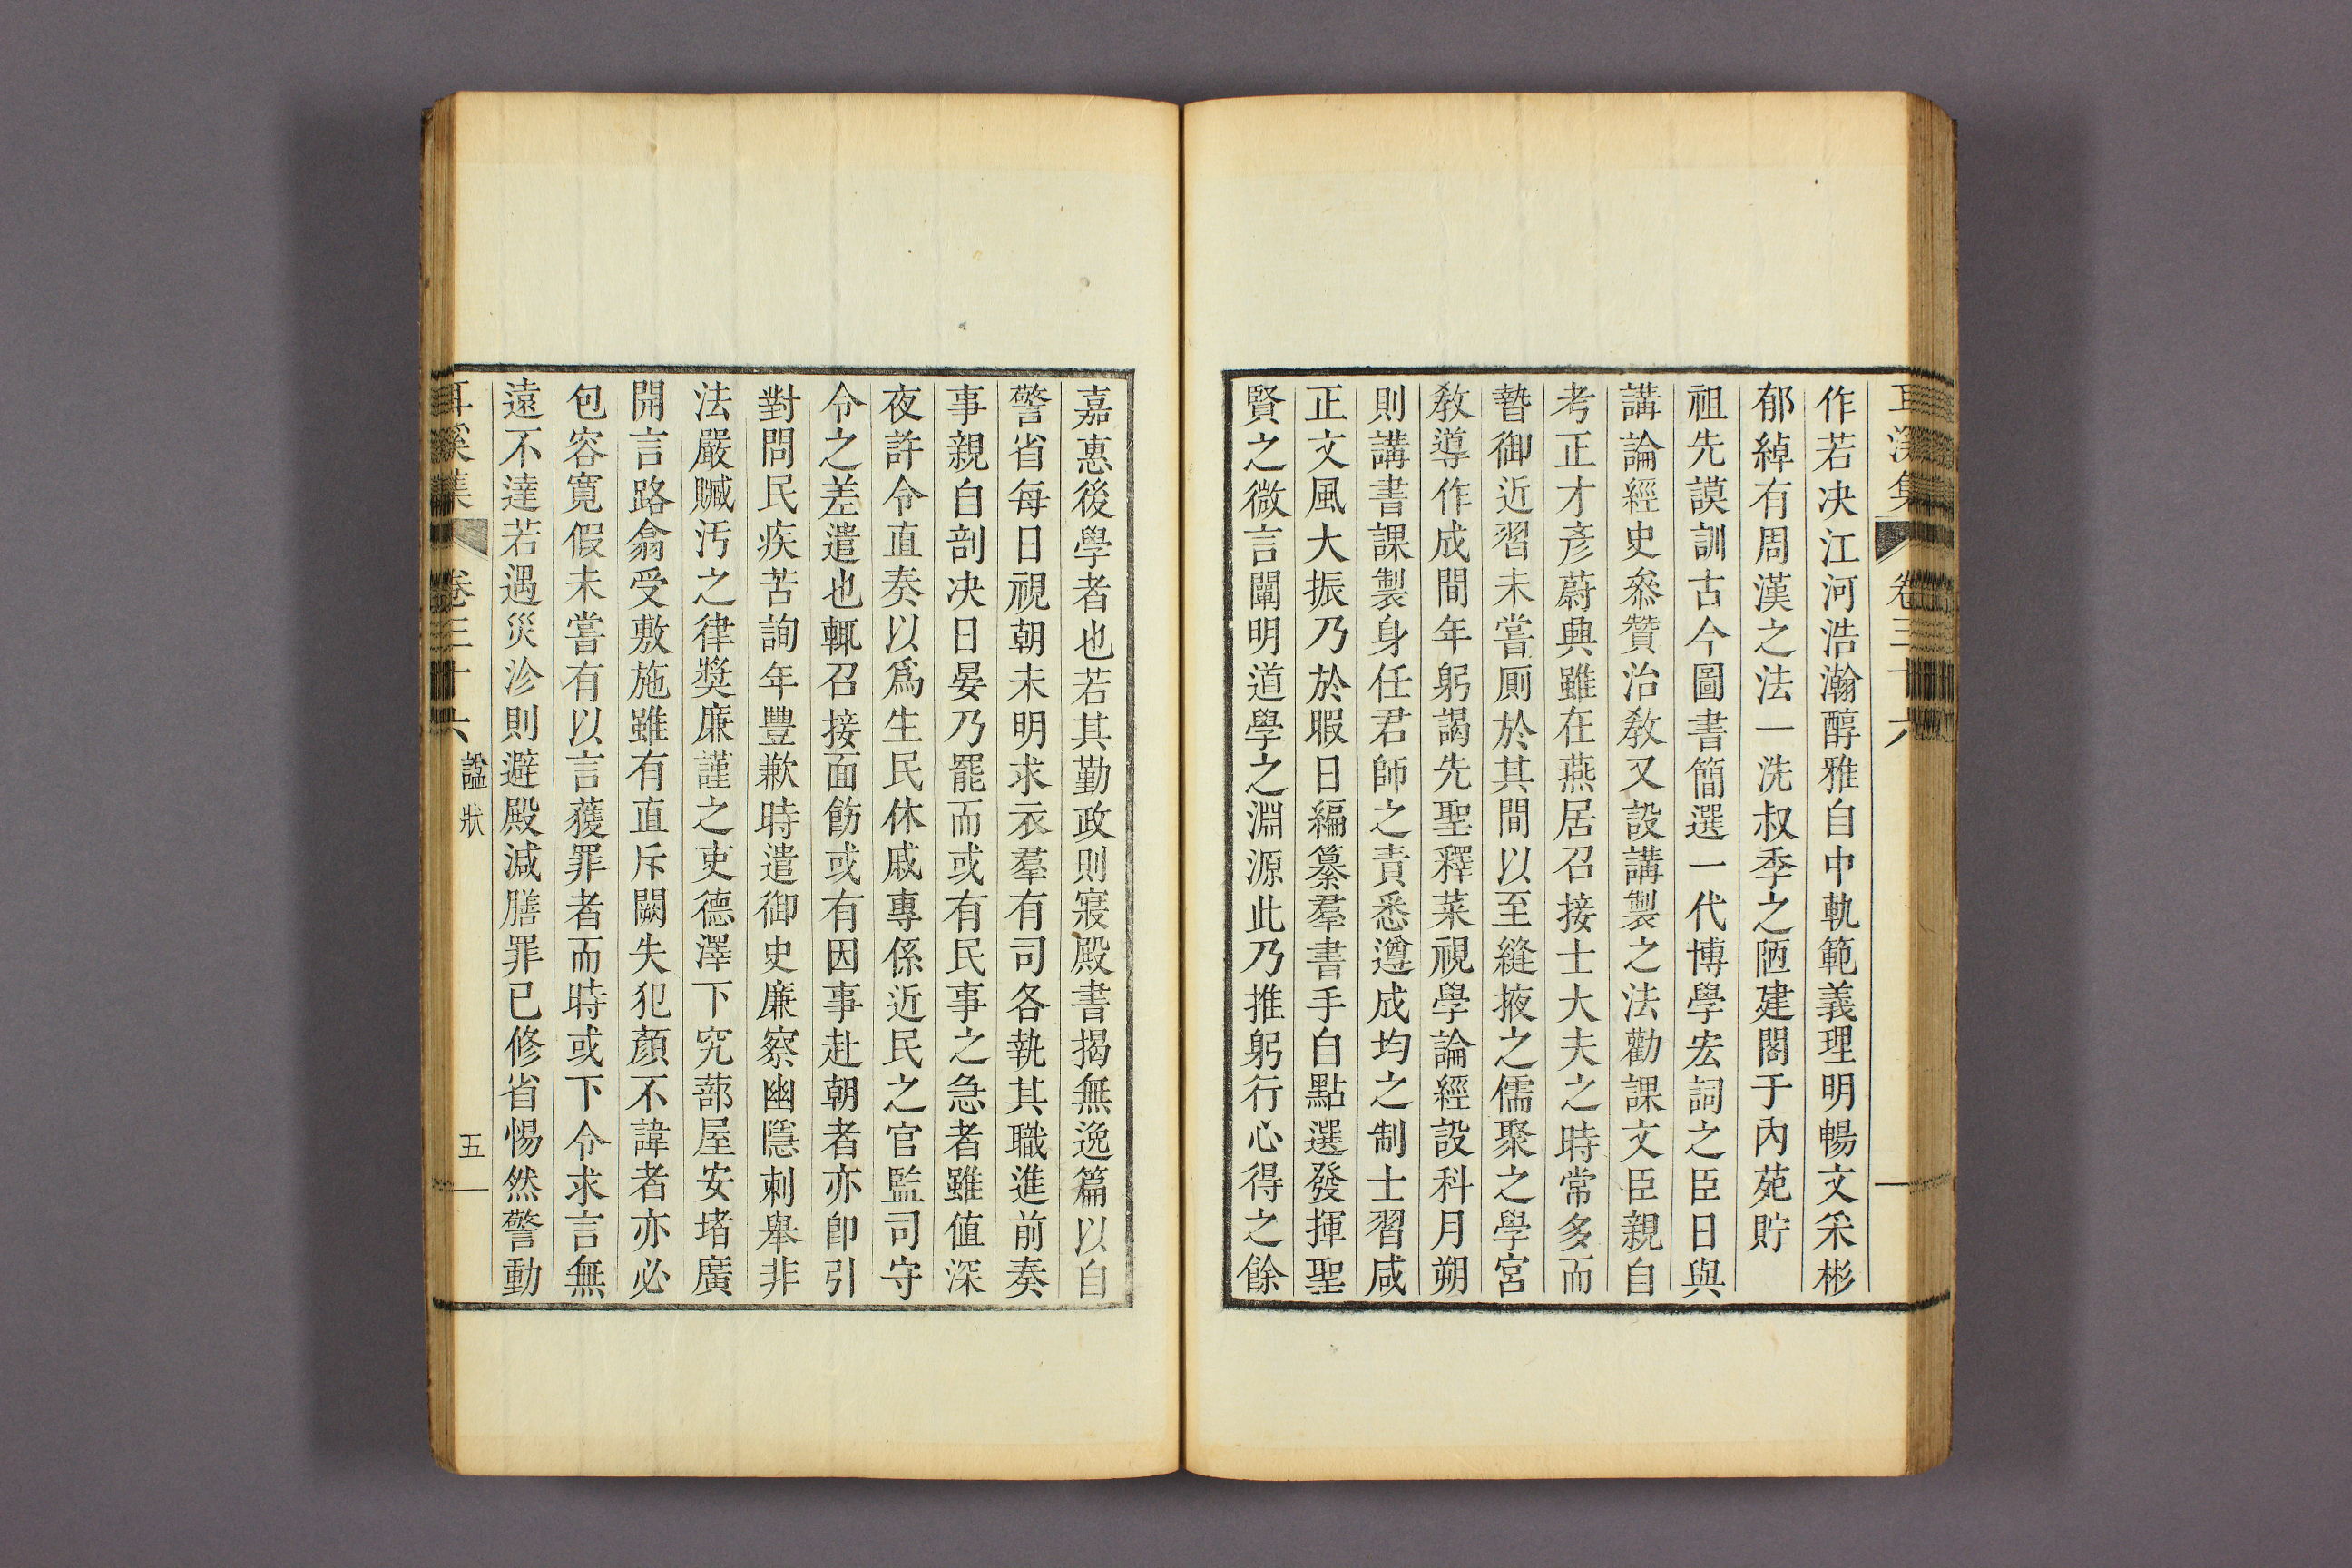 耳溪集 卷三十六
作若决江河浩瀚醇雅自中軌範義理明暢文采彬
郁綽有周漢之法一洗叔季之陋建閣于內苑貯
祖先謨訓古今圖書簡選一代博學宏詞之臣日與
講論經史叅贊治敎又設講製之法勸課文臣親自
考正才彥蔚興雖在燕居召接士大夫之時常多而
暬御近習未嘗厠於其間以至縫掖之儒聚之學宮
敎導作成間年躬謁先聖釋菜視學論經設科月朔
則講書課製身任君師之責悉遵成均之制士習咸
正文風大振乃於暇日編纂羣書手自點選發揮聖
賢之微言闡明道學之淵源此乃推躬行心得之餘
嘉惠後學者也若其勤政則寢殿書揭無逸篇以自
警省每日視朝未明求衣羣有司各執其職進前奏
事親自剖决日晏乃罷而或有民事之急者雖値深
夜許令直奏以爲生民休戚專係近民之官監司守
令之差遣也輒召接面飭或有因事赴朝者亦卽引
對問民疾苦詢年豐歉時遣御史廉察幽隱刺舉非
法嚴贓汚之律奬廉謹之吏德澤下究蔀屋安堵廣
開言路翕受敷施雖有直斥闕失犯顔不諱者亦必
包容寬假未嘗有以言獲罪者而時或下令求言無
遠不達若遇災沴則避殿減膳罪已修省惕然警動
耳溪集 卷三十六 諡狀 五